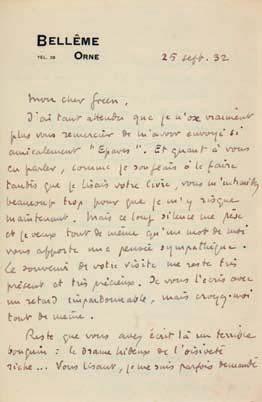 BELLÊME
TEL. 28 ORNE
25 sept. 32
Mon cher Green,
J'ai tant attendu que je n'ose vraiment
plus vous remercier de m'avoir envoyé si
amicalement "Epaves". Et quant à vous
en parler, comme je songeais à le faire
tandis que je lisais votre livre, vous m'intimidez
beaucoup trop pour que je m'y risque
maintenant. Mais ce long silence me pèse
et je veux tout de même qu'un mot de moi
vous apporte ma pensée sympathique.
Le souvenir de votre visite me reste très
présent et très précieux. Je vous l'écris avec
un retard impardonnable, mais croyez-moi
tout de même.
Reste que vous avez écrit là un terrible
bouquin : le drame hideux de l'oisiveté
riche... Vous lisant, je me suis parfois demandé